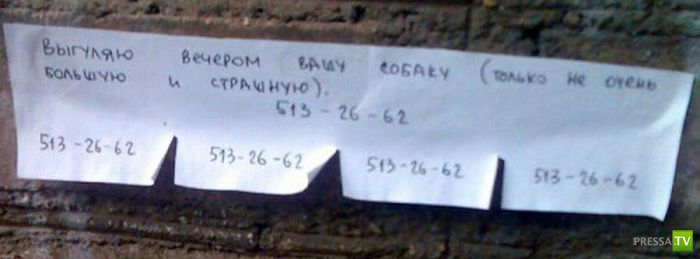 Выгуляю вечером вашу собаку (только не очень
большую и страшную).
513-26-62
513-26-62 513-26-62 513-26-62 513-26-62
PRESSA.TV